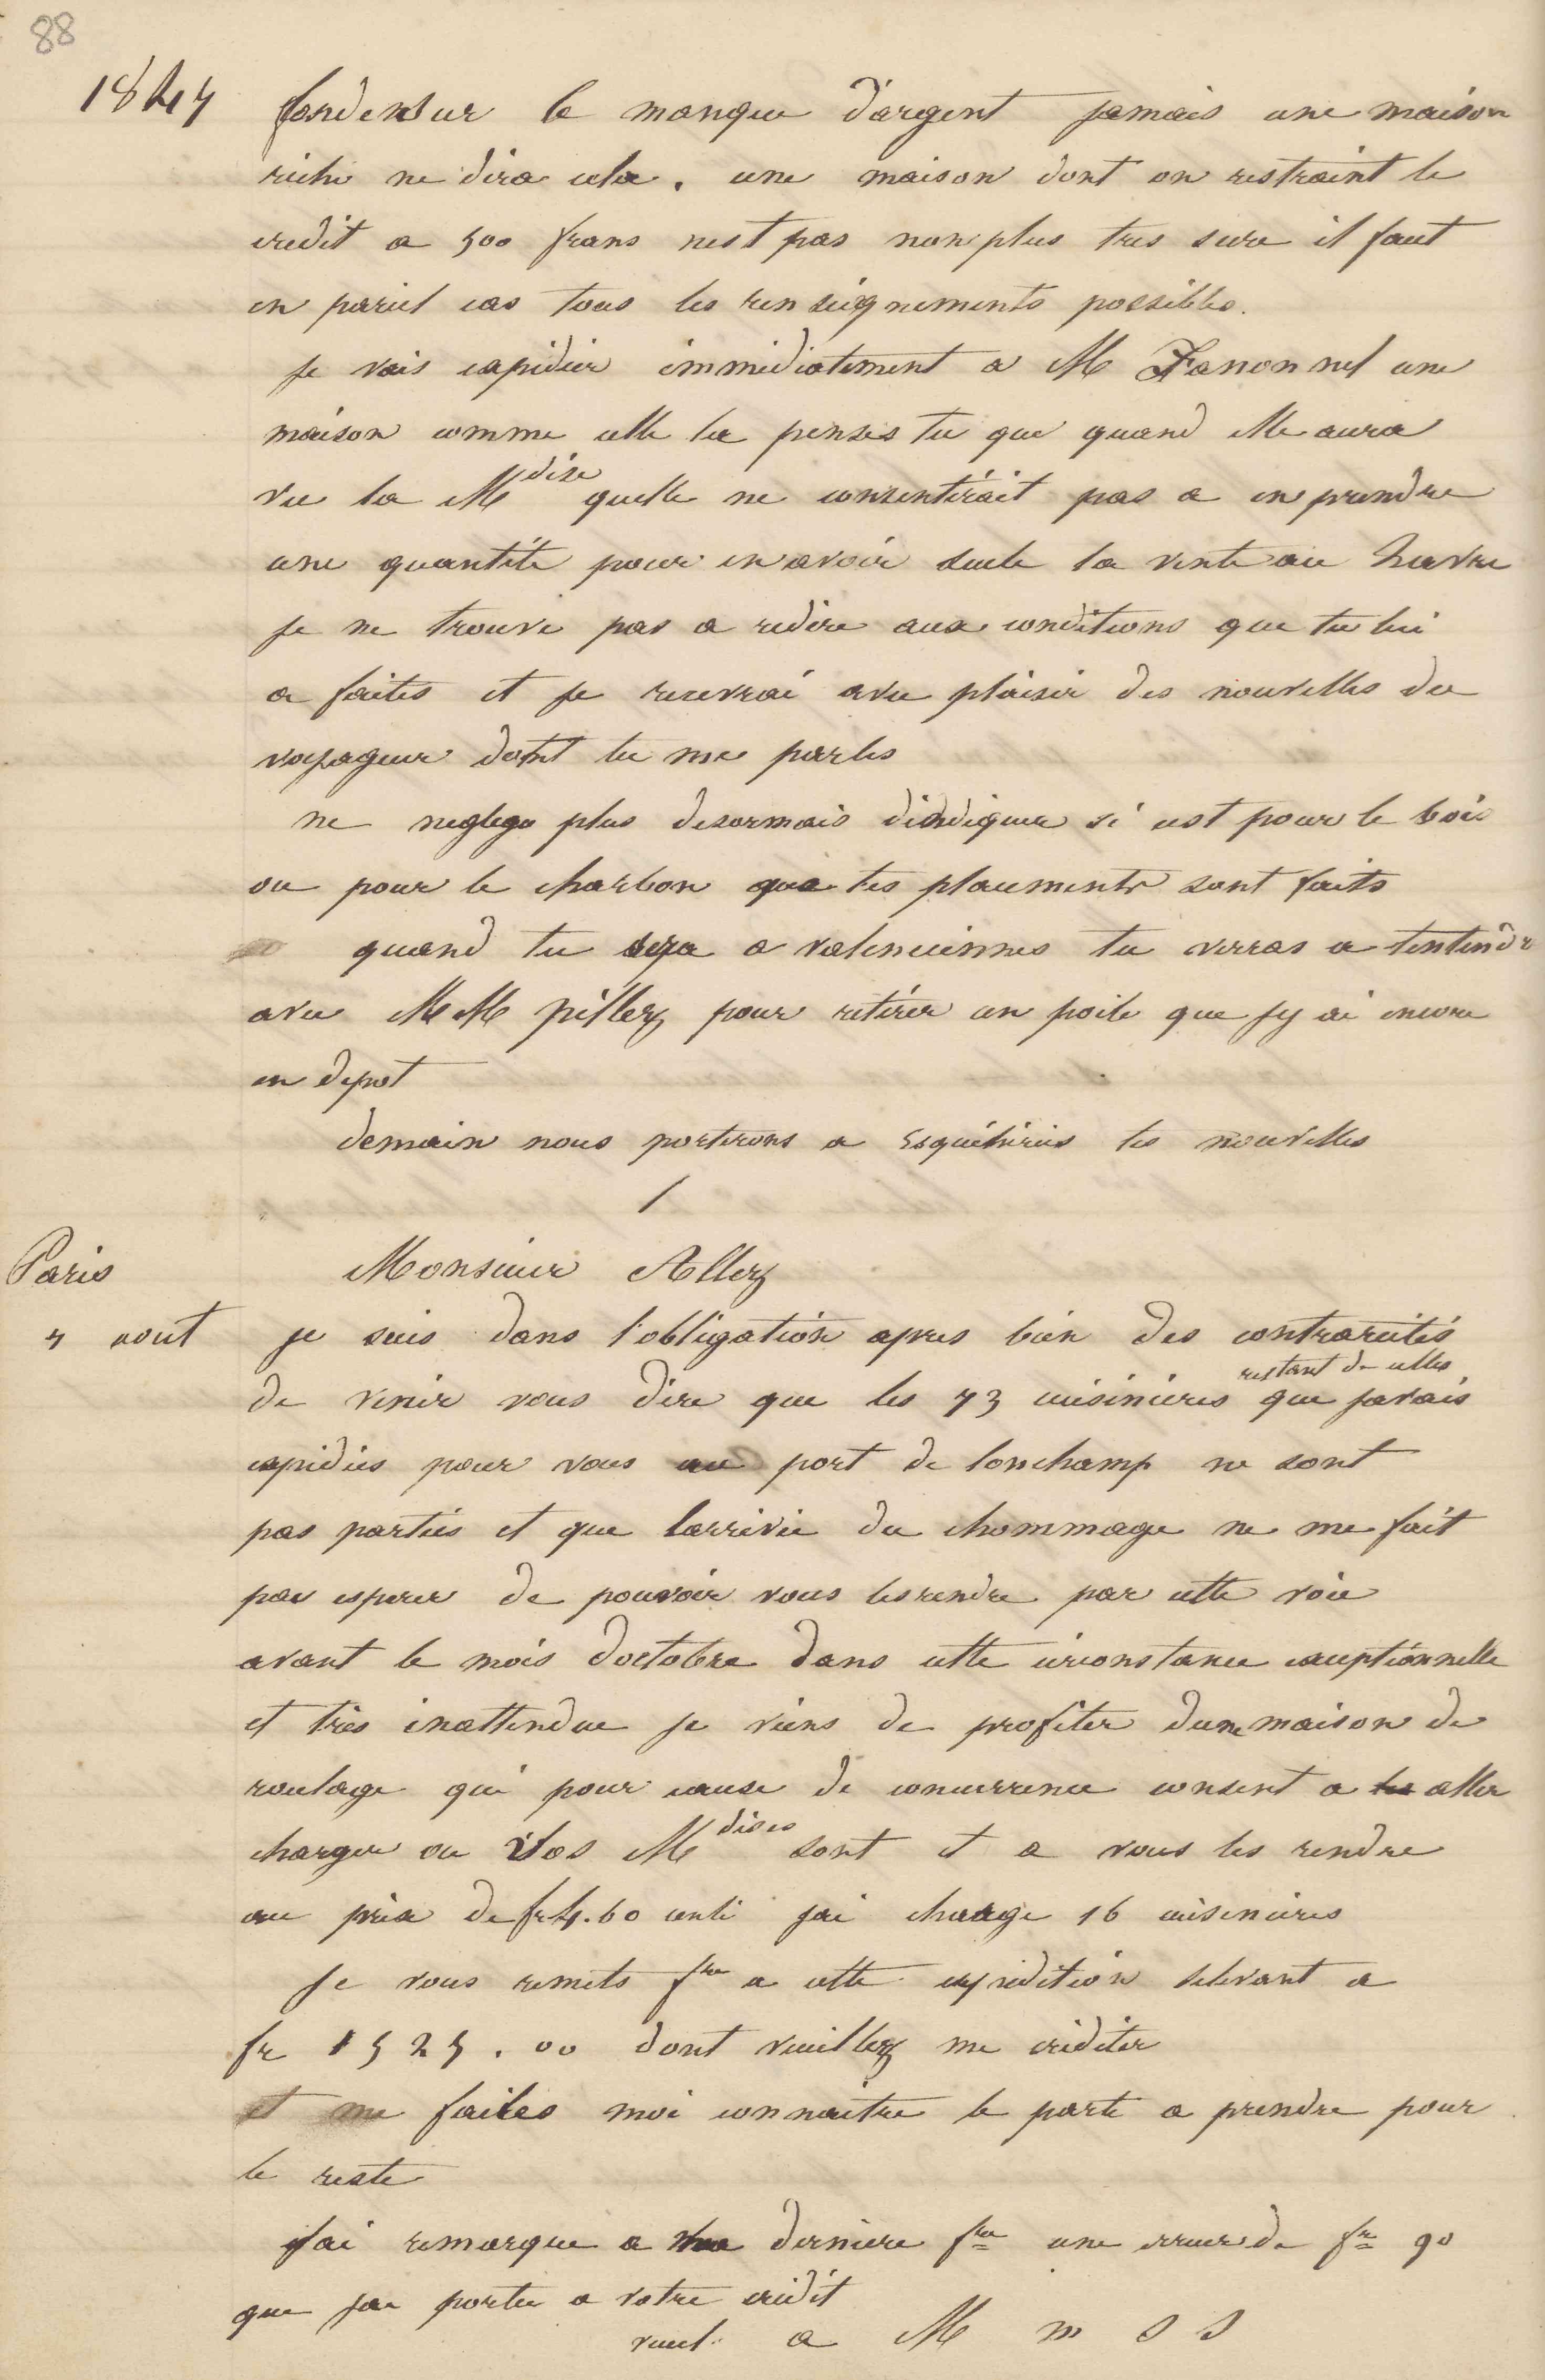 88
1844
fonden sur le manque d'argent jamais une maison
riche ne dira cela. une maison dont on restraint le
credit a 500 frans nest pas non plus tres sure il faut
en pariel cas tous les renseignements possibles.
je vais expidier immediatement a M Fanonnel une
maison comme celle la penses tu que quand elle aura
vu la Mdise quelle ne consentirait pas a en prendre
une quantite pour en avoir seule la vente au havre
je ne trouve pas a redire aux conditions que tu lui
a faites et je recevrai avec plaisir des nouvelles du
voyageur dont tu me parles
ne neglege plus desormais dindiquer si cest pour le bois
ou pour le charbon que tes placements sont faits
quand tu sera a valenciennes tu verras a tentendre
avec MM pillez pour retirer un poile que jy ai encore
en depot
demain nous porterons a Esquéhéries tes nouvelles
/
Paris
Monsieur Allez
5 aout
je suis dans l'obligation apres bien des contrarietés
restant de celles
de venir vous dire que les 73 cuisinieres que javais
expidiés pour vous au port de lonchamp ne sont
pas parties et que larrivée du chommage ne me fait
pas esperer de pouvoir vous les rendre par cette voie
avant le mois doctobre dans cette circonstance exceptionnelle
et très inattendue je viens de profiter dune maison de
roulage qui pour cause de concurrence consent a aller
charger ou Vos Mdises sont et a vous les rendre
au prix de fr 4.60 centi jai charge 16 cuisinieres
Je vous remets fre a cette expedition selevant a
fr 1525.00 dont veuillez me crediter
et me faites moi connaitre le parti a prendre pour
le reste
jai remarque a ma derniere fre une erreur de fr 90
que jai portee a votre crédit
veuil. a M m s s